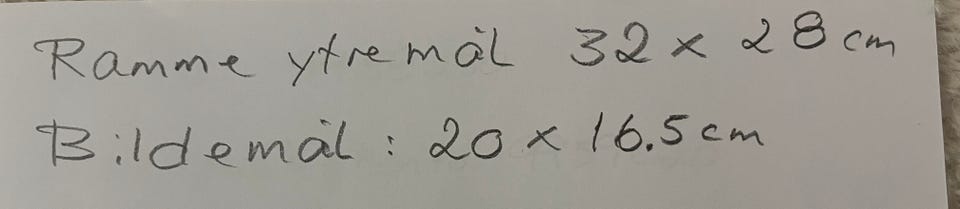 Ramme ytre mål 32 x 28 cm
Bildemål : 20 x 16.5 cm